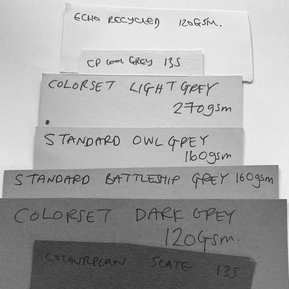 ECHO RECYCLED 120GSM.
CP COOL GREY 135
COLORSET LIGHT GREY
270gsm
STANDARD OWL GREY
160gsm
STANDARD BATTLESHIP GREY 160gsm
COLORSET DARK GREY
120GSM.
COLOURPLAN SLATE 135